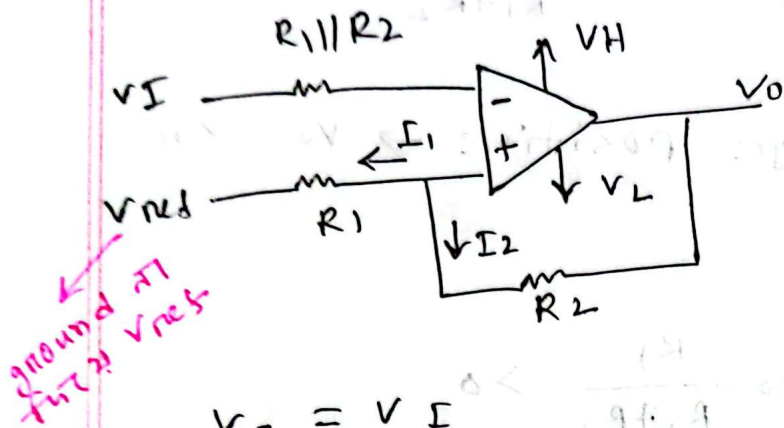 R1||R2
VH
VI
-
Vo
I1
+
VL
Vref
R1
I2
R2
ground
Vref
V = VI
R1
> 0